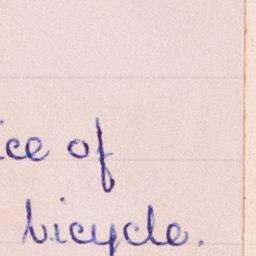 ice of
bicycle.